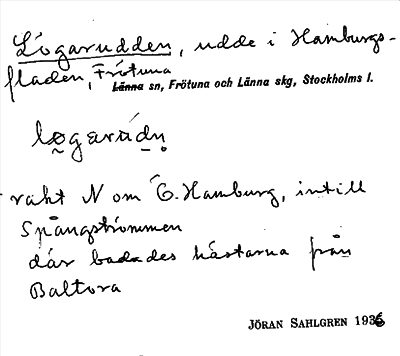 Lögarudden, udde i Hamburgs-
fladen, Frötuna
Länna sn, Frötuna och Länna skg, Stockholms l.
lø̰garúdn̥
rakt N om Ö. Hamburg, intill
Spångströmmen
där badades hästarna från
Baltora
JÖRAN SAHLGREN 1936